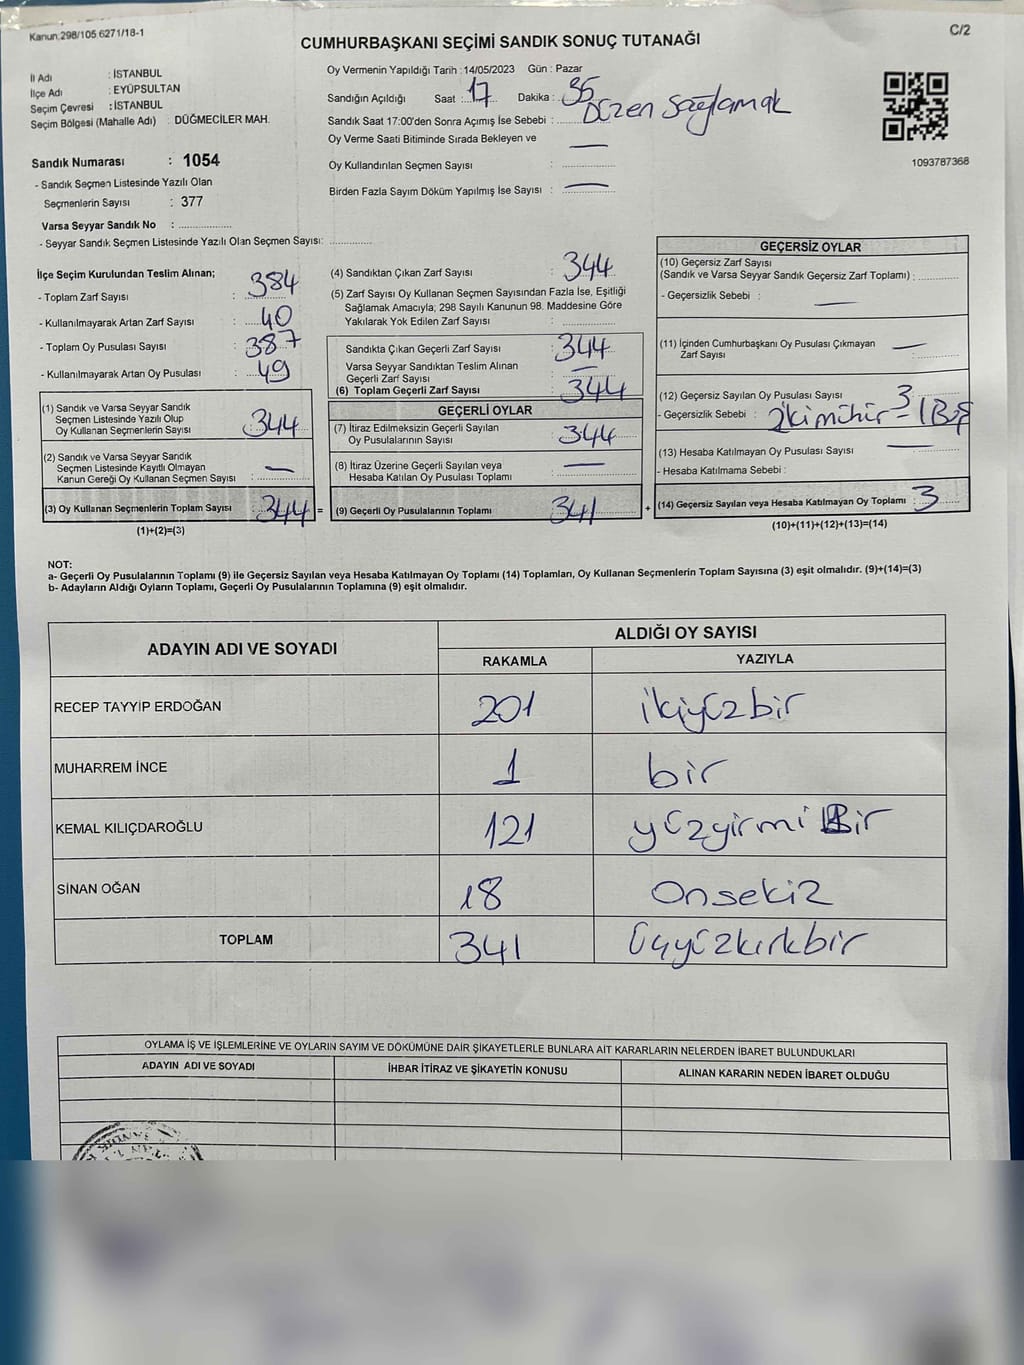 Kanun:298/105.6271/18-1
C/2
CUMHURBAŞKANI SEÇİMİ SANDIK SONUÇ TUTANAĞI
İl Adı : İSTANBUL
İlçe Adı : EYÜPSULTAN
Seçim Çevresi : İSTANBUL
Seçim Bölgesi (Mahalle Adı) : DÜĞMECİLER MAH.
Sandık Numarası : 1054
- Sandık Seçmen Listesinde Yazılı Olan
Seçmenlerin Sayısı : 377
Varsa Seyyar Sandık No : ....................
- Seyyar Sandık Seçmen Listesinde Yazılı Olan Seçmen Sayısı: ..............
Oy Vermenin Yapıldığı Tarih : 14/05/2023 Gün : Pazar
Sandığın Açıldığı Saat : 17 Dakika : 35
Sandık Saat 17:00'den Sonra Açımış İse Sebebi : Düzen Sağlamak
Oy Verme Saati Bitiminde Sırada Bekleyen ve
Oy Kullandırılan Seçmen Sayısı : —
Birden Fazla Sayım Döküm Yapılmış İse Sayısı : —
1093787368
İlçe Seçim Kurulundan Teslim Alınan;
- Toplam Zarf Sayısı : 384
- Kullanılmayarak Artan Zarf Sayısı : 40
- Toplam Oy Pusulası Sayısı : 387
- Kullanılmayarak Artan Oy Pusulası : 49
(1) Sandık ve Varsa Seyyar Sandık
Seçmen Listesinde Yazılı Olup
Oy Kullanan Seçmenlerin Sayısı 344
(2) Sandık ve Varsa Seyyar Sandık
Seçmen Listesinde Kayıtlı Olmayan
Kanun Gereği Oy Kullanan Seçmen Sayısı : —
(3) Oy Kullanan Seçmenlerin Toplam Sayısı : 344 =
(1)+(2)=(3)
(4) Sandıktan Çıkan Zarf Sayısı : 344
(5) Zarf Sayısı Oy Kullanan Seçmen Sayısından Fazla İse, Eşitliği
Sağlamak Amacıyla; 298 Sayılı Kanunun 98. Maddesine Göre
Yakılarak Yok Edilen Zarf Sayısı :
Sandıkta Çıkan Geçerli Zarf Sayısı : 344
Varsa Seyyar Sandıktan Teslim Alınan
Geçerli Zarf Sayısı : —
(6) Toplam Geçerli Zarf Sayısı : 344
GEÇERLİ OYLAR
(7) İtiraz Edilmeksizin Geçerli Sayılan
Oy Pusulalarının Sayısı : 344
(8) İtiraz Üzerine Geçerli Sayılan veya
Hesaba Katılan Oy Pusulası Toplamı : —
(9) Geçerli Oy Pusulalarının Toplamı 341 +
GEÇERSİZ OYLAR
(10) Geçersiz Zarf Sayısı
(Sandık ve Varsa Seyyar Sandık Geçersiz Zarf Toplamı) :
- Geçersizlik Sebebi : —
(11) İçinden Cumhurbaşkanı Oy Pusulası Çıkmayan
Zarf Sayısı : —
(12) Geçersiz Sayılan Oy Pusulası Sayısı : 3
- Geçersizlik Sebebi : 2 iki mühür – 1 Boş
(13) Hesaba Katılmayan Oy Pusulası Sayısı : —
- Hesaba Katılmama Sebebi :
(14) Geçersiz Sayılan veya Hesaba Katılmayan Oy Toplamı : 3
(10)+(11)+(12)+(13)=(14)
NOT:
a- Geçerli Oy Pusulalarının Toplamı (9) ile Geçersiz Sayılan veya Hesaba Katılmayan Oy Toplamı (14) Toplamları, Oy Kullanan Seçmenlerin Toplam Sayısına (3) eşit olmalıdır. (9)+(14)=(3)
b- Adayların Aldığı Oyların Toplamı, Geçerli Oy Pusulalarının Toplamına (9) eşit olmalıdır.
ADAYIN ADI VE SOYADI ALDIĞI OY SAYISI
RAKAMLA YAZIYLA
RECEP TAYYİP ERDOĞAN 201 ikiyüzbir
MUHARREM İNCE 1 bir
KEMAL KILIÇDAROĞLU 121 yüzyirmi Bir
SİNAN OĞAN 18 Onsekiz
TOPLAM 341 üçyüzkırkbir
OYLAMA İŞ VE İŞLEMLERİNE VE OYLARIN SAYIM VE DÖKÜMÜNE DAİR ŞİKAYETLERLE BUNLARA AİT KARARLARIN NELERDEN İBARET BULUNDUKLARI
ADAYIN ADI VE SOYADI İHBAR İTİRAZ VE ŞİKAYETİN KONUSU ALINAN KARARIN NEDEN İBARET OLDUĞU